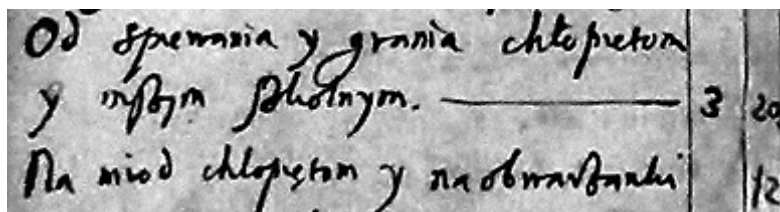 Od spewania y grania chłopietom
y inßym ßkolnym. — 3 20
Na miod chlopiętom y na obwarßanki 12